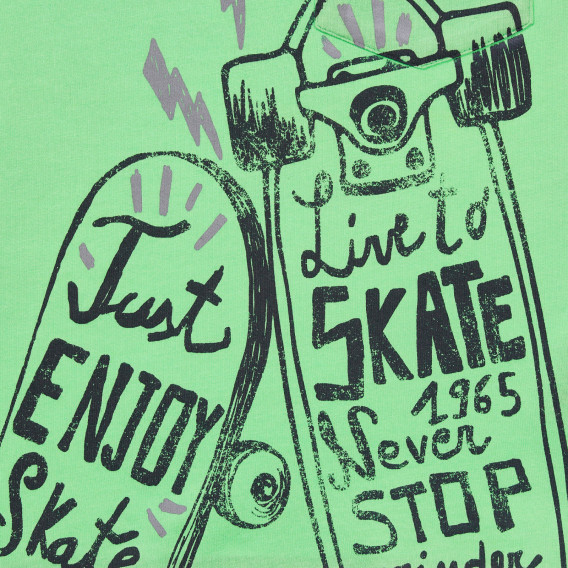 Just
ENJOY
Skate
Live to
SKATE
1965
Never
STOP